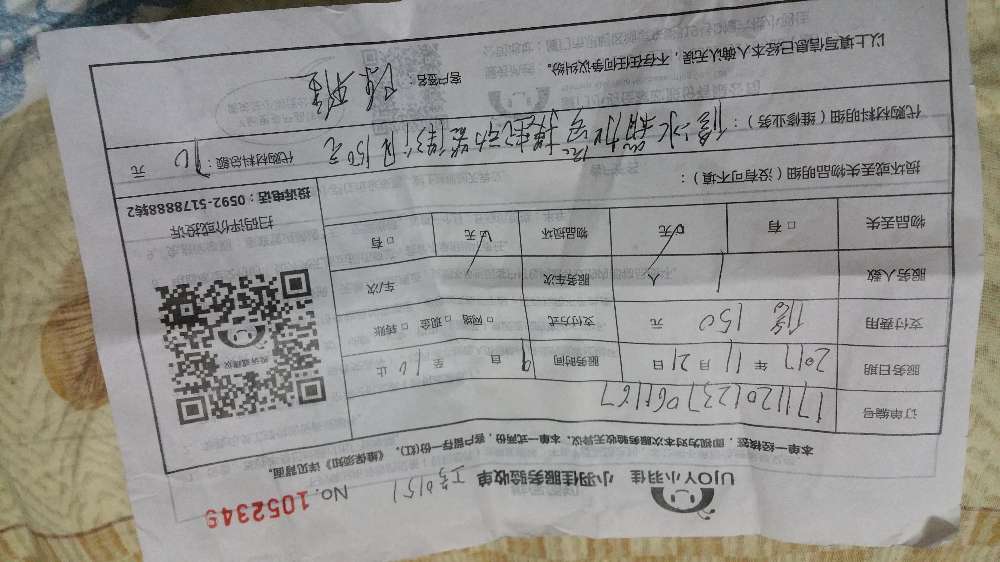 UJOY小羽佳 小羽佳服务验收单 工号0151 No. 1052349
本单一经核签，即视为对本次服务验收无异议，本单一式两份，客户留存一份(红)，《维保须知》详见背面。
订单编号 1711201237061167
服务日期 2017年11月21日 服务时间 9 自 至 10 止
支付费用 修150 元 支付方式 □网络 □现金 □转账
服务人数 1 人 服务车次 车/次
物品丢失 □有 □无 物品损坏 □无 □有
损坏或丢失物品明细（没有可不填）：
投诉或建议
扫码评价或投诉
投诉电话：0592-5178888转2
代购材料明细（维修业务）：
150元 代购材料总额： 元
客户签名：
以上填写信息已经本人确认无误，不存在任何争议纠纷。